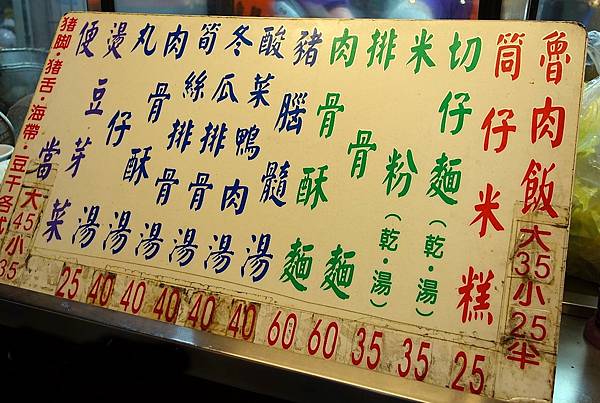 魯肉飯 大35小25半
筒仔米糕
切仔麵(乾·湯)
米粉(乾·湯)
排骨麵
肉骨酥麵
豬腦髓湯
酸菜鴨肉湯
冬瓜排骨湯
筍絲排骨湯
肉骨酥湯
丸仔湯
燙豆芽菜
便當
猪脚·猪舌·海帶·豆干各
大45小35
25 40 40 40 40 40 60 60 35 35 25